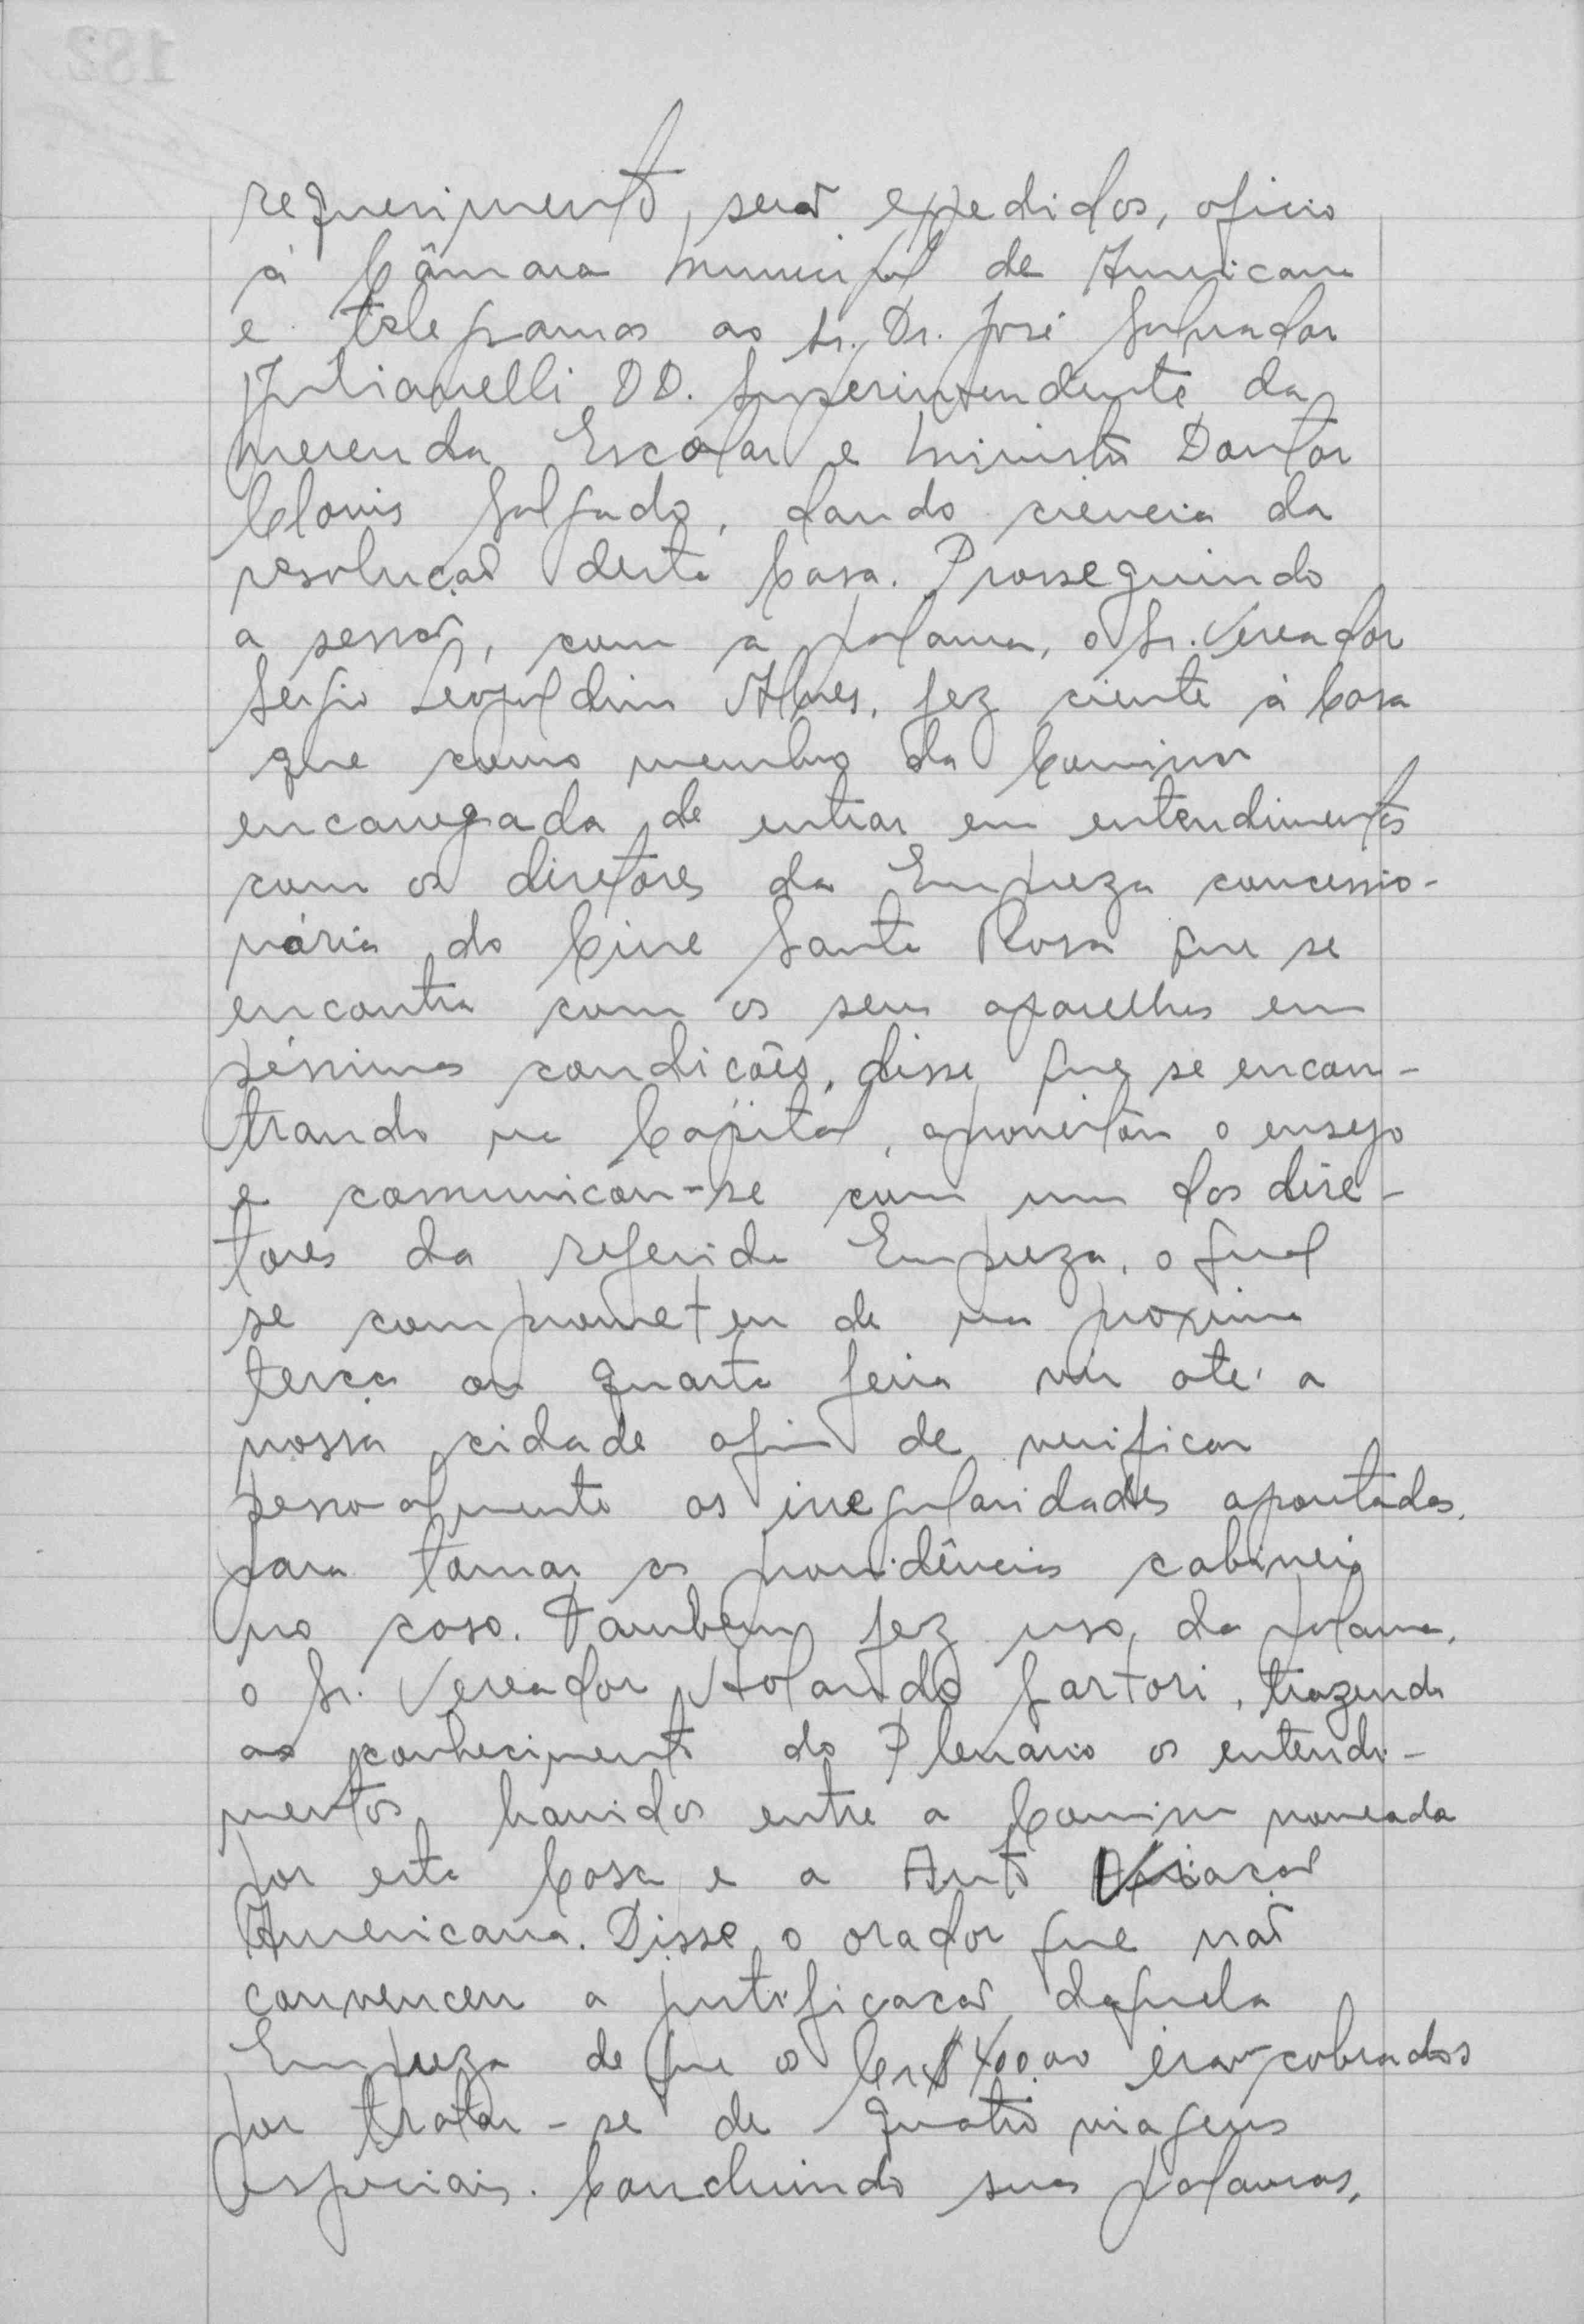 requerimento, serão expedidos, oficio
á Câmara Municipal de Americana
e telegramas ao Sr. Dr. José Salvador
Julianelli DD. Superintendente da
Merenda Escolar e Ministro Doutor
Clovis Salgado, dando ciencia da
resolução desta Casa. Prosseguindo
a sessão, com a palavra, o Sr. Vereador
Sergio Leopoldino Alves, fez ciente á Casa
que como membro da Comissão
encarregada de entrar em entendimentos
com os diretores da Empreza concessio-
nária do Cine Santa Rosa que se
encontra com os seus aparelhos em
péssimas condições, disse que se encon-
trando na Capital, aproveitou o ensejo
e comunicou-se com um dos dire-
tores da referida Empreza, o qual
se comprometeu de na proxima
terça ou quarta feira vir até a
nossa cidade afim de verificar
pessoalmente as irregularidades apontadas,
para tomar as providências cabiveis
no caso. Tambem fez uso da palavra,
o Sr. Vereador Holando Sartori, trazendo
ao conhecimento do Plenário os entendi-
mentos havidos entre a Comissão nomeada
por esta Casa e a Auto Viação
Americana. Disse o orador que não
convenceu a justificação daquela
Empreza de que os Cr$ 400,00 eram cobrados
por tratar-se de quatro viagens
especiais. Concluindo suas palavras,
182